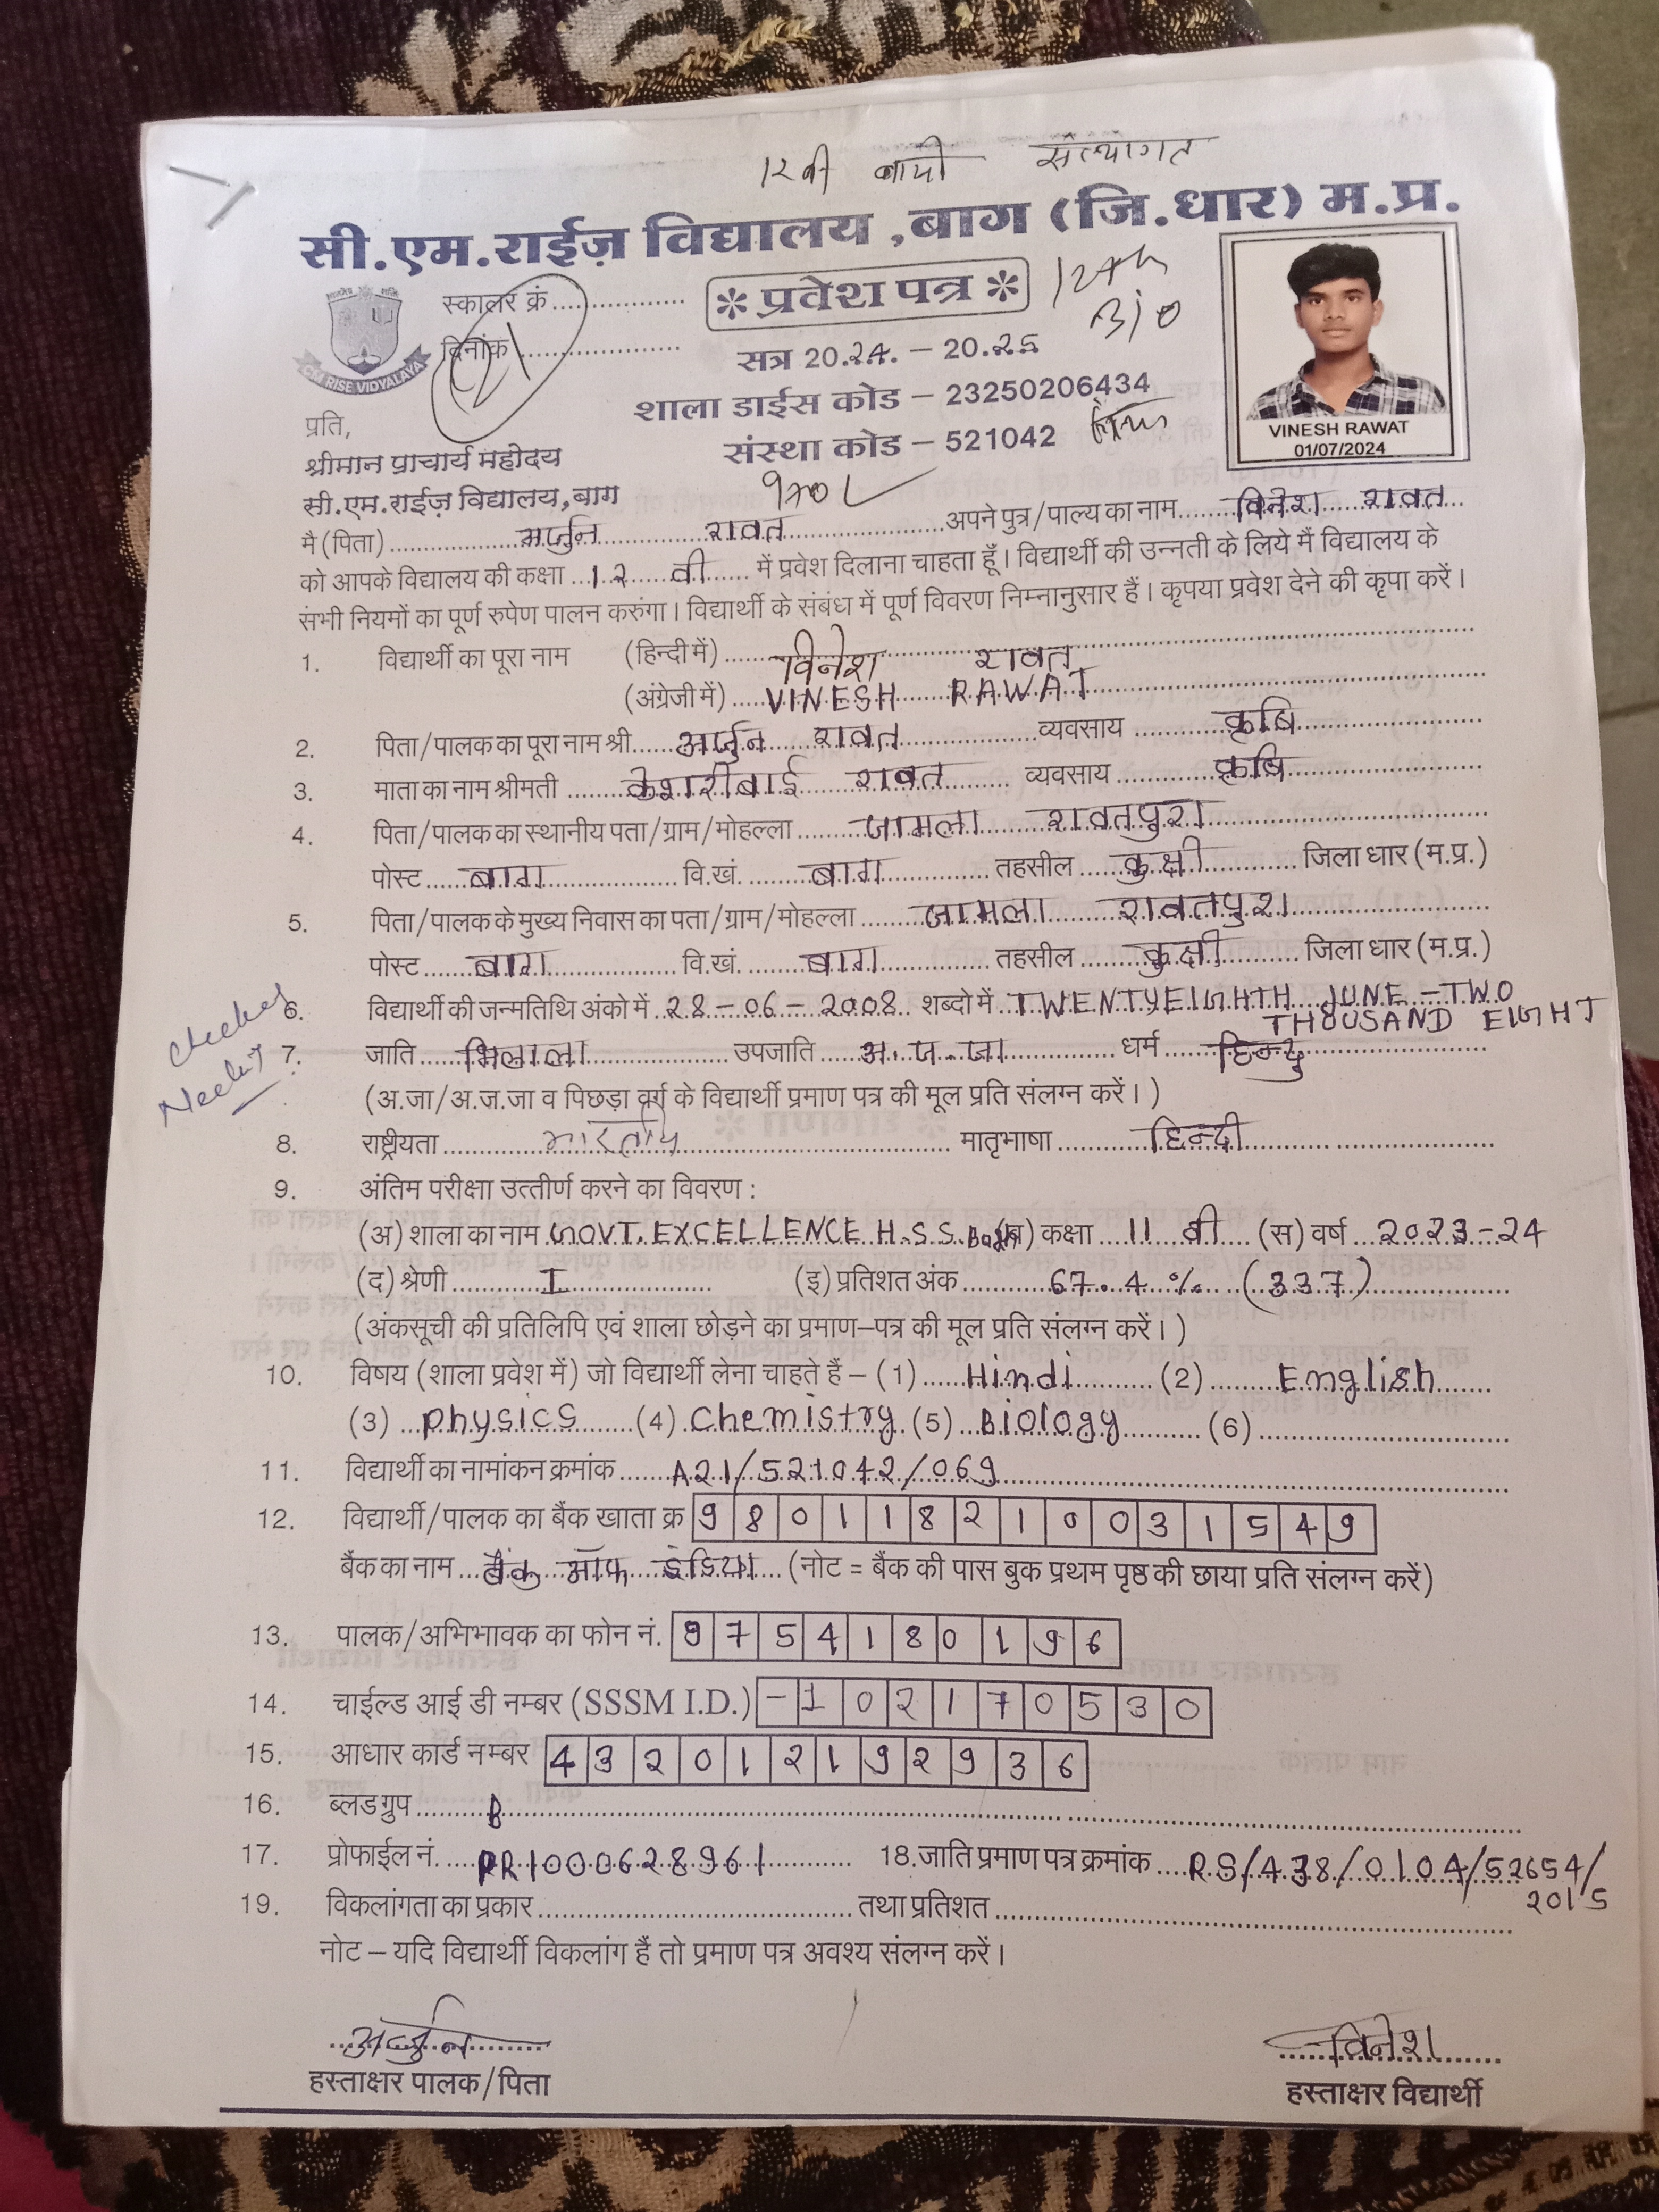 12वी बायो संस्थागत
सी.एम.राईज़ विद्यालय ,बाग (जि.धार) म.प्र.
स्कालर क्रं....................
* प्रवेश पत्र *
12th
Bio
दिनांक ........................
21
CM RISE VIDYALAYA
सत्र 20.24. – 20.25
शाला डाईस कोड – 23250206434
संस्था कोड – 521042
VINESH RAWAT
01/07/2024
प्रति,
श्रीमान प्राचार्य महोदय
सी.एम.राईज़ विद्यालय,बाग
मै (पिता) अर्जुन रावत अपने पुत्र/पाल्य का नाम विनेश रावत
को आपके विद्यालय की कक्षा 12 वी में प्रवेश दिलाना चाहता हूँ। विद्यार्थी की उन्नती के लिये मैं विद्यालय के
संभी नियमों का पूर्ण रुपेण पालन करुंगा। विद्यार्थी के संबंध में पूर्ण विवरण निम्नानुसार हैं। कृपया प्रवेश देने की कृपा करें।
1. विद्यार्थी का पूरा नाम (हिन्दी में) विनेश रावत
(अंग्रेजी में) VINESH RAWAT
2. पिता/पालक का पूरा नाम श्री अर्जुन रावत व्यवसाय कृषि
3. माता का नाम श्रीमती केशरीबाई रावत व्यवसाय कृषि
4. पिता/पालक का स्थानीय पता/ग्राम/मोहल्ला जामला रावतपुरा
पोस्ट बाग वि.खं. बाग तहसील कुक्षी जिला धार (म.प्र.)
5. पिता/पालक के मुख्य निवास का पता/ग्राम/मोहल्ला जामला रावतपुरा
पोस्ट बाग वि.खं. बाग तहसील कुक्षी जिला धार (म.प्र.)
6. विद्यार्थी की जन्मतिथि अंको में 28-06-2008 शब्दो में TWENTYEIGHTH JUNE-TWO
THOUSAND EIGHT
7. जाति भिलाला उपजाति अ.ज.जा धर्म हिन्दु
(अ.जा/अ.ज.जा व पिछड़ा वर्ग के विद्यार्थी प्रमाण पत्र की मूल प्रति संलग्न करें। )
8. राष्ट्रीयता भारतीय मातृभाषा हिन्दी
9. अंतिम परीक्षा उत्तीर्ण करने का विवरण :
(अ) शाला का नाम GOVT. EXCELLENCE H.S.S. Bagh (ब) कक्षा 11 वी (स) वर्ष 2023-24
(द) श्रेणी I (इ) प्रतिशत अंक 67.4 % (337)
(अंकसूची की प्रतिलिपि एवं शाला छोड़ने का प्रमाण–पत्र की मूल प्रति संलग्न करें। )
10. विषय (शाला प्रवेश में) जो विद्यार्थी लेना चाहते हैं – (1) Hindi (2) English
(3) physics (4) Chemistry (5) Biology (6)
11. विद्यार्थी का नामांकन क्रमांक A21/521042/069
12. विद्यार्थी/पालक का बैंक खाता क्र 980118210031549
बैंक का नाम बैंक ऑफ इंडिया (नोट = बैंक की पास बुक प्रथम पृष्ठ की छाया प्रति संलग्न करें)
13. पालक/अभिभावक का फोन नं. 9754180196
14. चाईल्ड आई डी नम्बर (SSSM I.D.) -102170530
15. आधार कार्ड नम्बर 432012192936
16. ब्लड ग्रुप B
17. प्रोफाईल नं. PR1000628961 18. जाति प्रमाण पत्र क्रमांक RS/438/0104/52654/
2015
19. विकलांगता का प्रकार तथा प्रतिशत
नोट – यदि विद्यार्थी विकलांग हैं तो प्रमाण पत्र अवश्य संलग्न करें।
अर्जुन
विनेश
हस्ताक्षर पालक/पिता
हस्ताक्षर विद्यार्थी